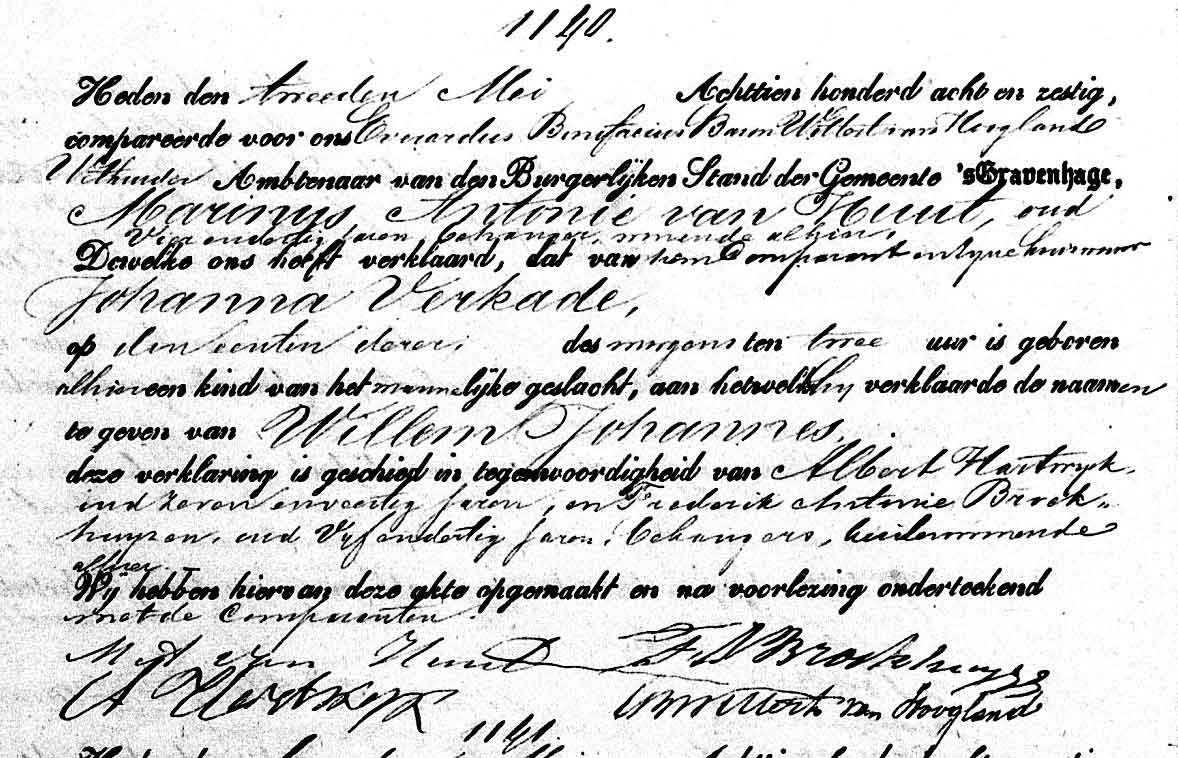 1140.
Heden den tweeden Mei Achttien honderd acht en zestig,
compareerde voor ons Everardus Bonifacius Baron Wittert van Hoogland
Wethouder Ambtenaar van den Burgerlijken Stand der Gemeente 'sGravenhage,
Marinus Antonie van Huut, oud
Vier endertig jaren, behanger, wonende alhier,
Dewelke ons heeft verklaard, dat van hem Comparant en zijne huisvrouw
Johanna Verkade,
op den eersten dezer, des morgens ten twee uur is geboren
alhier een kind van het mannelijke geslacht, aan hetwelk hij verklaarde de naamen
te geven van Willem Johannes,
deze verklaring is geschied in tegenwoordigheid van Albert Hartwyk,
oud zeven enveertig jaren, en Frederik Antonie Broek„
huyzen, oud Vyf endertig jaren, behangers, beide wonende
alhier
Wij hebben hiervan deze akte opgemaakt en na voorlezing onderteekend
met de Comparanten.
van Huut F A Broekhuyze
A Hartwyk Wittert van Hoogland
1141.
Achttien honderd acht en zestig